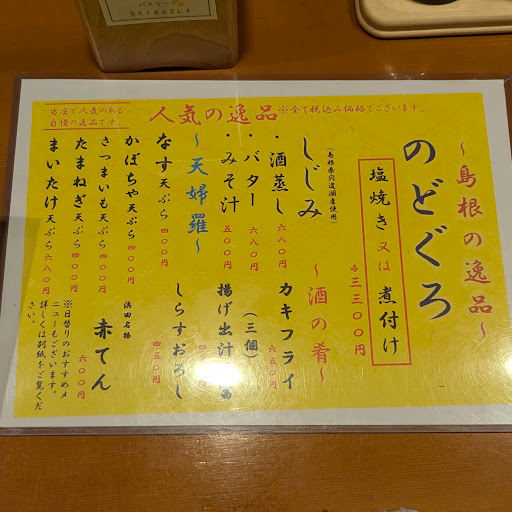 パスワード
当店で人気のある
自慢の逸品です。
人気の逸品
※全て税込み価格でございます。
～島根の逸品～
のどぐろ
塩焼き又は煮付け
各三三〇〇円
しじみ
(島根県宍道湖産使用)
・酒蒸し 六八〇円
・バター 六八〇円
・みそ汁 五〇〇円
～酒の肴～
カキフライ
(三個) 六五〇円
揚げ出汁
しらすおろし
四五〇円
浜田名物
赤てん
六〇〇円
～天婦羅～
なす天ぷら 四〇〇円
かぼちゃ天ぷら 四〇〇円
さつまいも天ぷら 四〇〇円
たまねぎ天ぷら 四〇〇円
まいたけ天ぷら 六八〇円
※日替りのおすすめメ
ニューもございます。
詳しくは別紙をご覧くだ
さい。